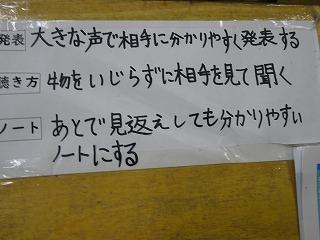 発表 大きな声で相手に分かりやすく発表する
聴き方 物をいじらずに相手を見て聞く
ノート あとで見返えしても分かりやすい
ノートにする